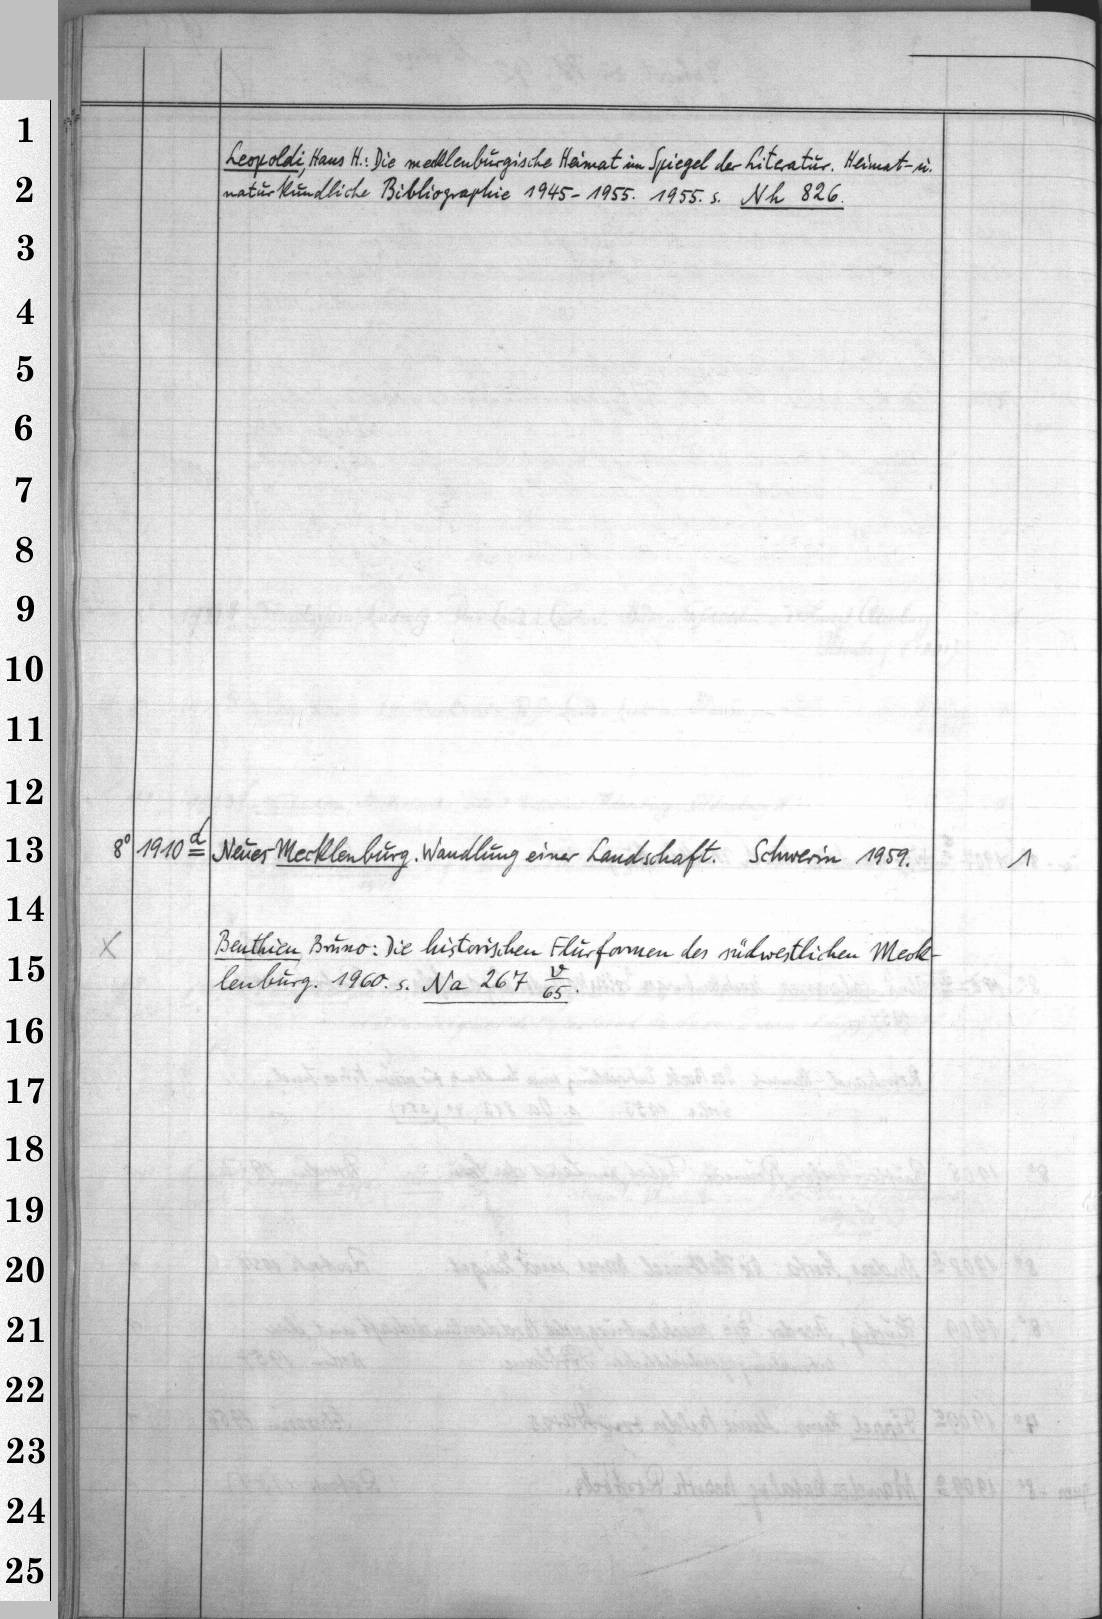 1
2
3
4
5
6
7
8
9
10
11
12
13
14
15
16
17
18
19
20
21
22
23
24
25
Leopoldi, Hans H.: Die mecklenburgische Heimat im Spiegel der Literatur. Heimat- u.
naturkundliche Bibliographie 1945-1955. 1955. s. Nh 826.
8° 1910 d Neues Mecklenburg. Wandlung einer Landschaft. Schwerin 1959. 1
X Benthien Bruno: Die historischen Flurformen des südwestlichen Meck-
lenburg. 1960. s. Na 267 v/65.